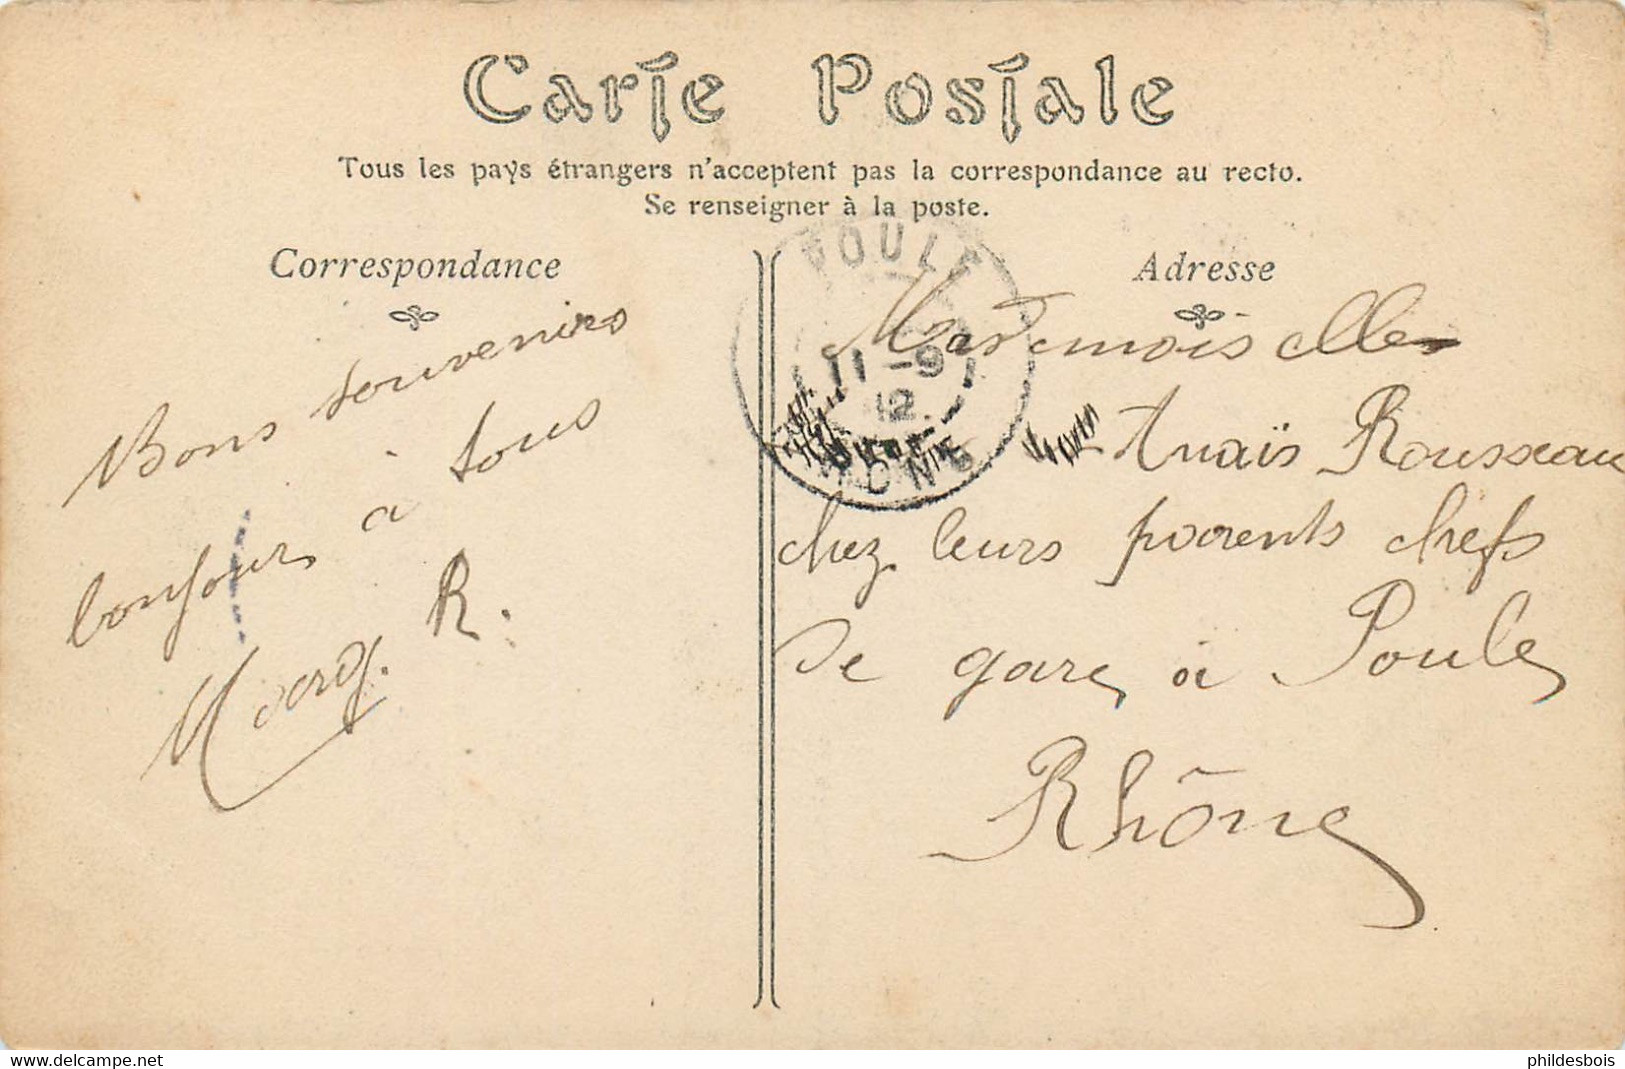 Carte Postale
Tous les pays étrangers n'acceptent pas la correspondance au recto.
Se renseigner à la poste.
Correspondance
Bons souvenirs
bonjours à tous
Marg. R.
Adresse
POULE
11 -9
12
RHONE
Mademoiselle
Anaïs Rousseau
chez leurs parents chefs
de gare à Poule
Rhône
www.delcampe.net
phildesbois